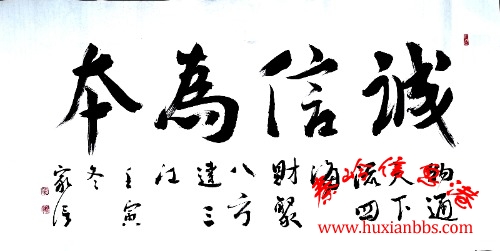 誠信為本
物通天下流四海財聚八方達三江
壬寅冬
www.huxianbbs.com